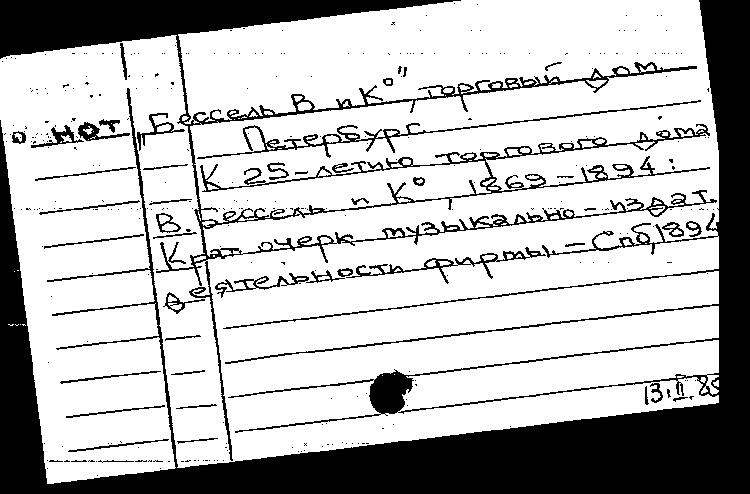 о нот „Бессель В и К°", торговый дом.
Петербург
К 25-летию торгового дома
В. Бессель и К°, 1869-1894:
Крат очерк музыкально-издат.
деятельности фирмы. - Спб, 1894
13.II.85